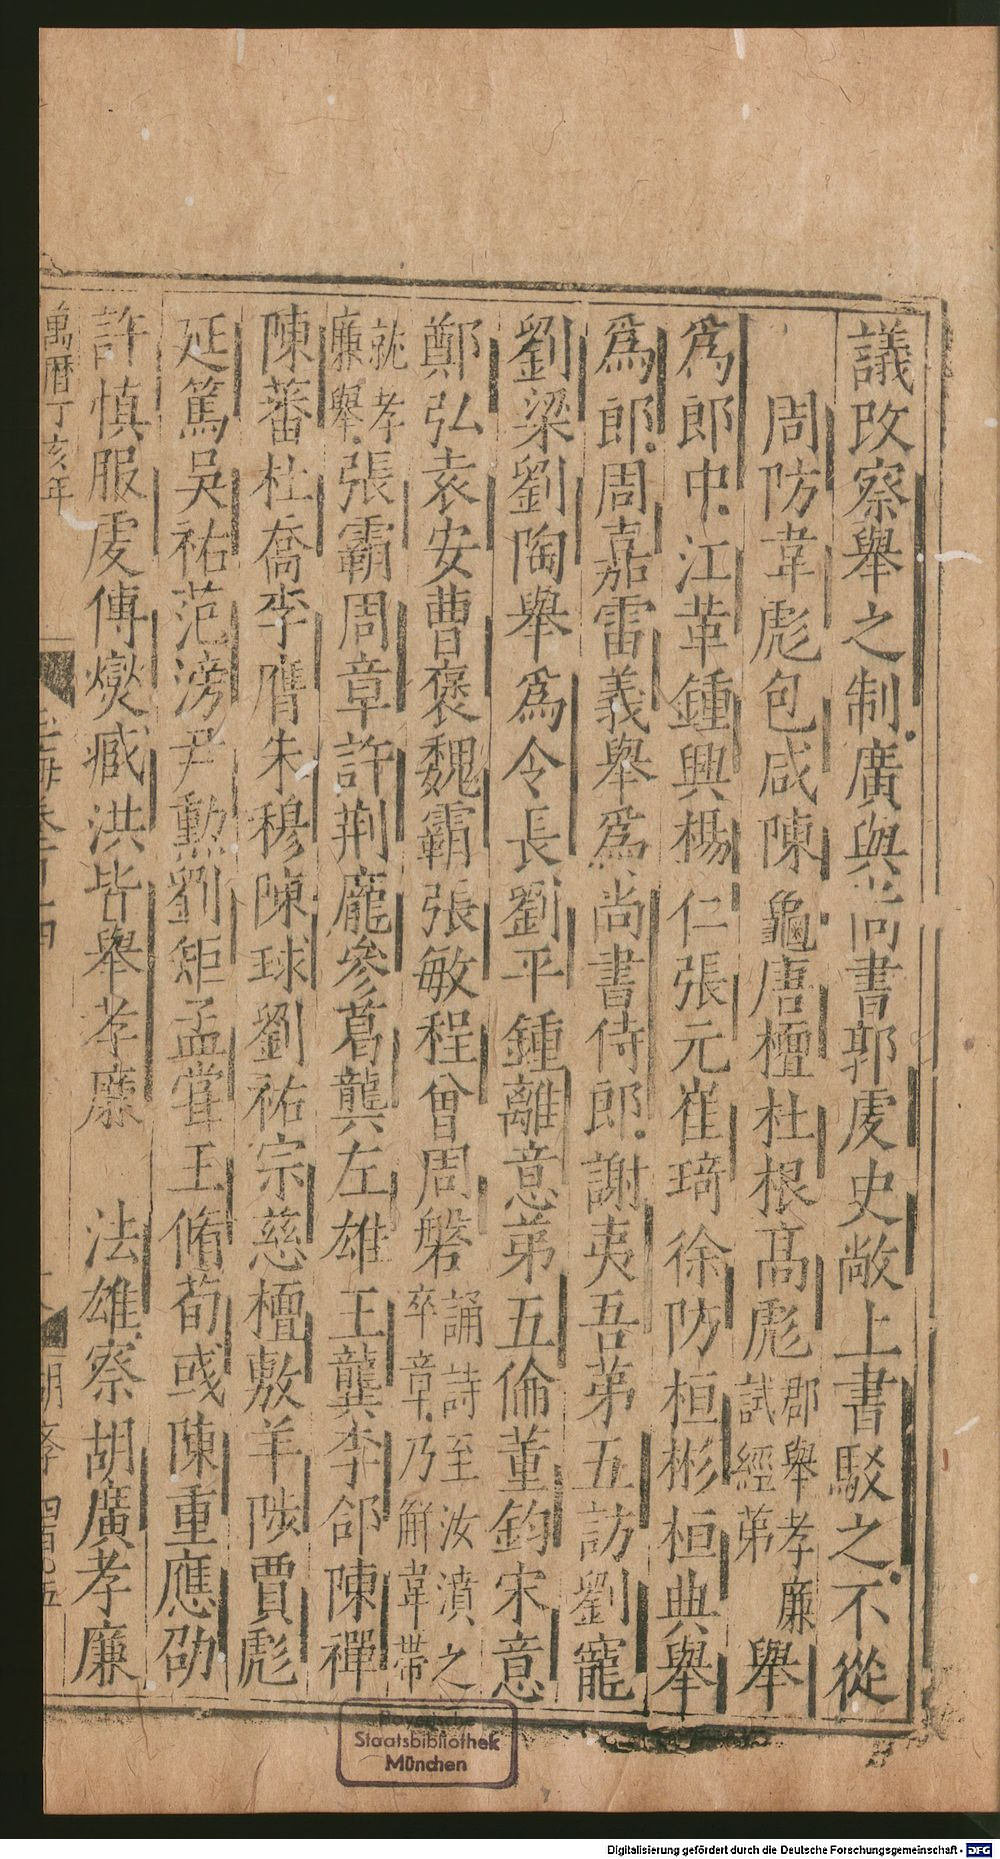 議改察舉之制廣與尚書郭虔史敞上書駁之不從
周防韋彪包咸陳龜唐檀杜根高彪郡舉孝廉試經第舉
為郎中江革鍾興楊仁張元崔琦徐防桓彬桓典舉
為郎周嘉雷義舉為尚書侍郎謝夷吾第五訪劉寵
劉梁劉陶舉為令長劉平鍾離意第五倫董鈞宋意
鄭弘袁安曹褒魏霸張敏程曾周磐誦詩至汝濆之卒章乃解韋帶
就孝廉舉張霸周章許荆龐參葛龔左雄王龔李郃陳禪
陳蕃杜喬李膺朱穆陳球劉祐宗慈檀敷羊陟賈彪
延篤吳祐范滂尹勳劉矩孟嘗王脩荀彧陳重應劭
許慎服虔傅燮臧洪皆舉孝廉　法雄察胡廣孝廉
萬曆丁亥年
Bayerische
Staatsbibliothek
München
Digitalisierung gefördert durch die Deutsche Forschungsgemeinschaft - DFG